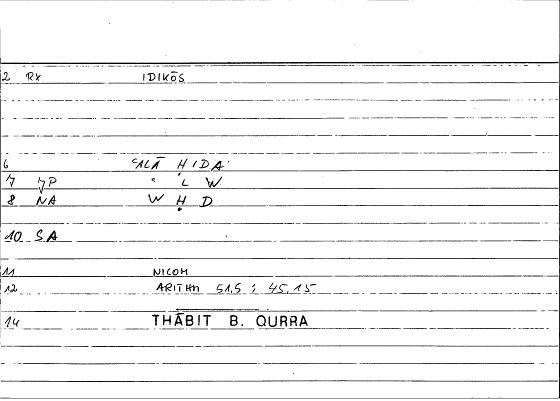 2 Rx IDIKŌS
6 ʿALĀ ḤIDA
7 JP ʿ L W
8 NA W Ḥ D
10 SA
11 NICOM
12 ARITHM 51,5 ; 45,15
14 THĀBIT B. QURRA